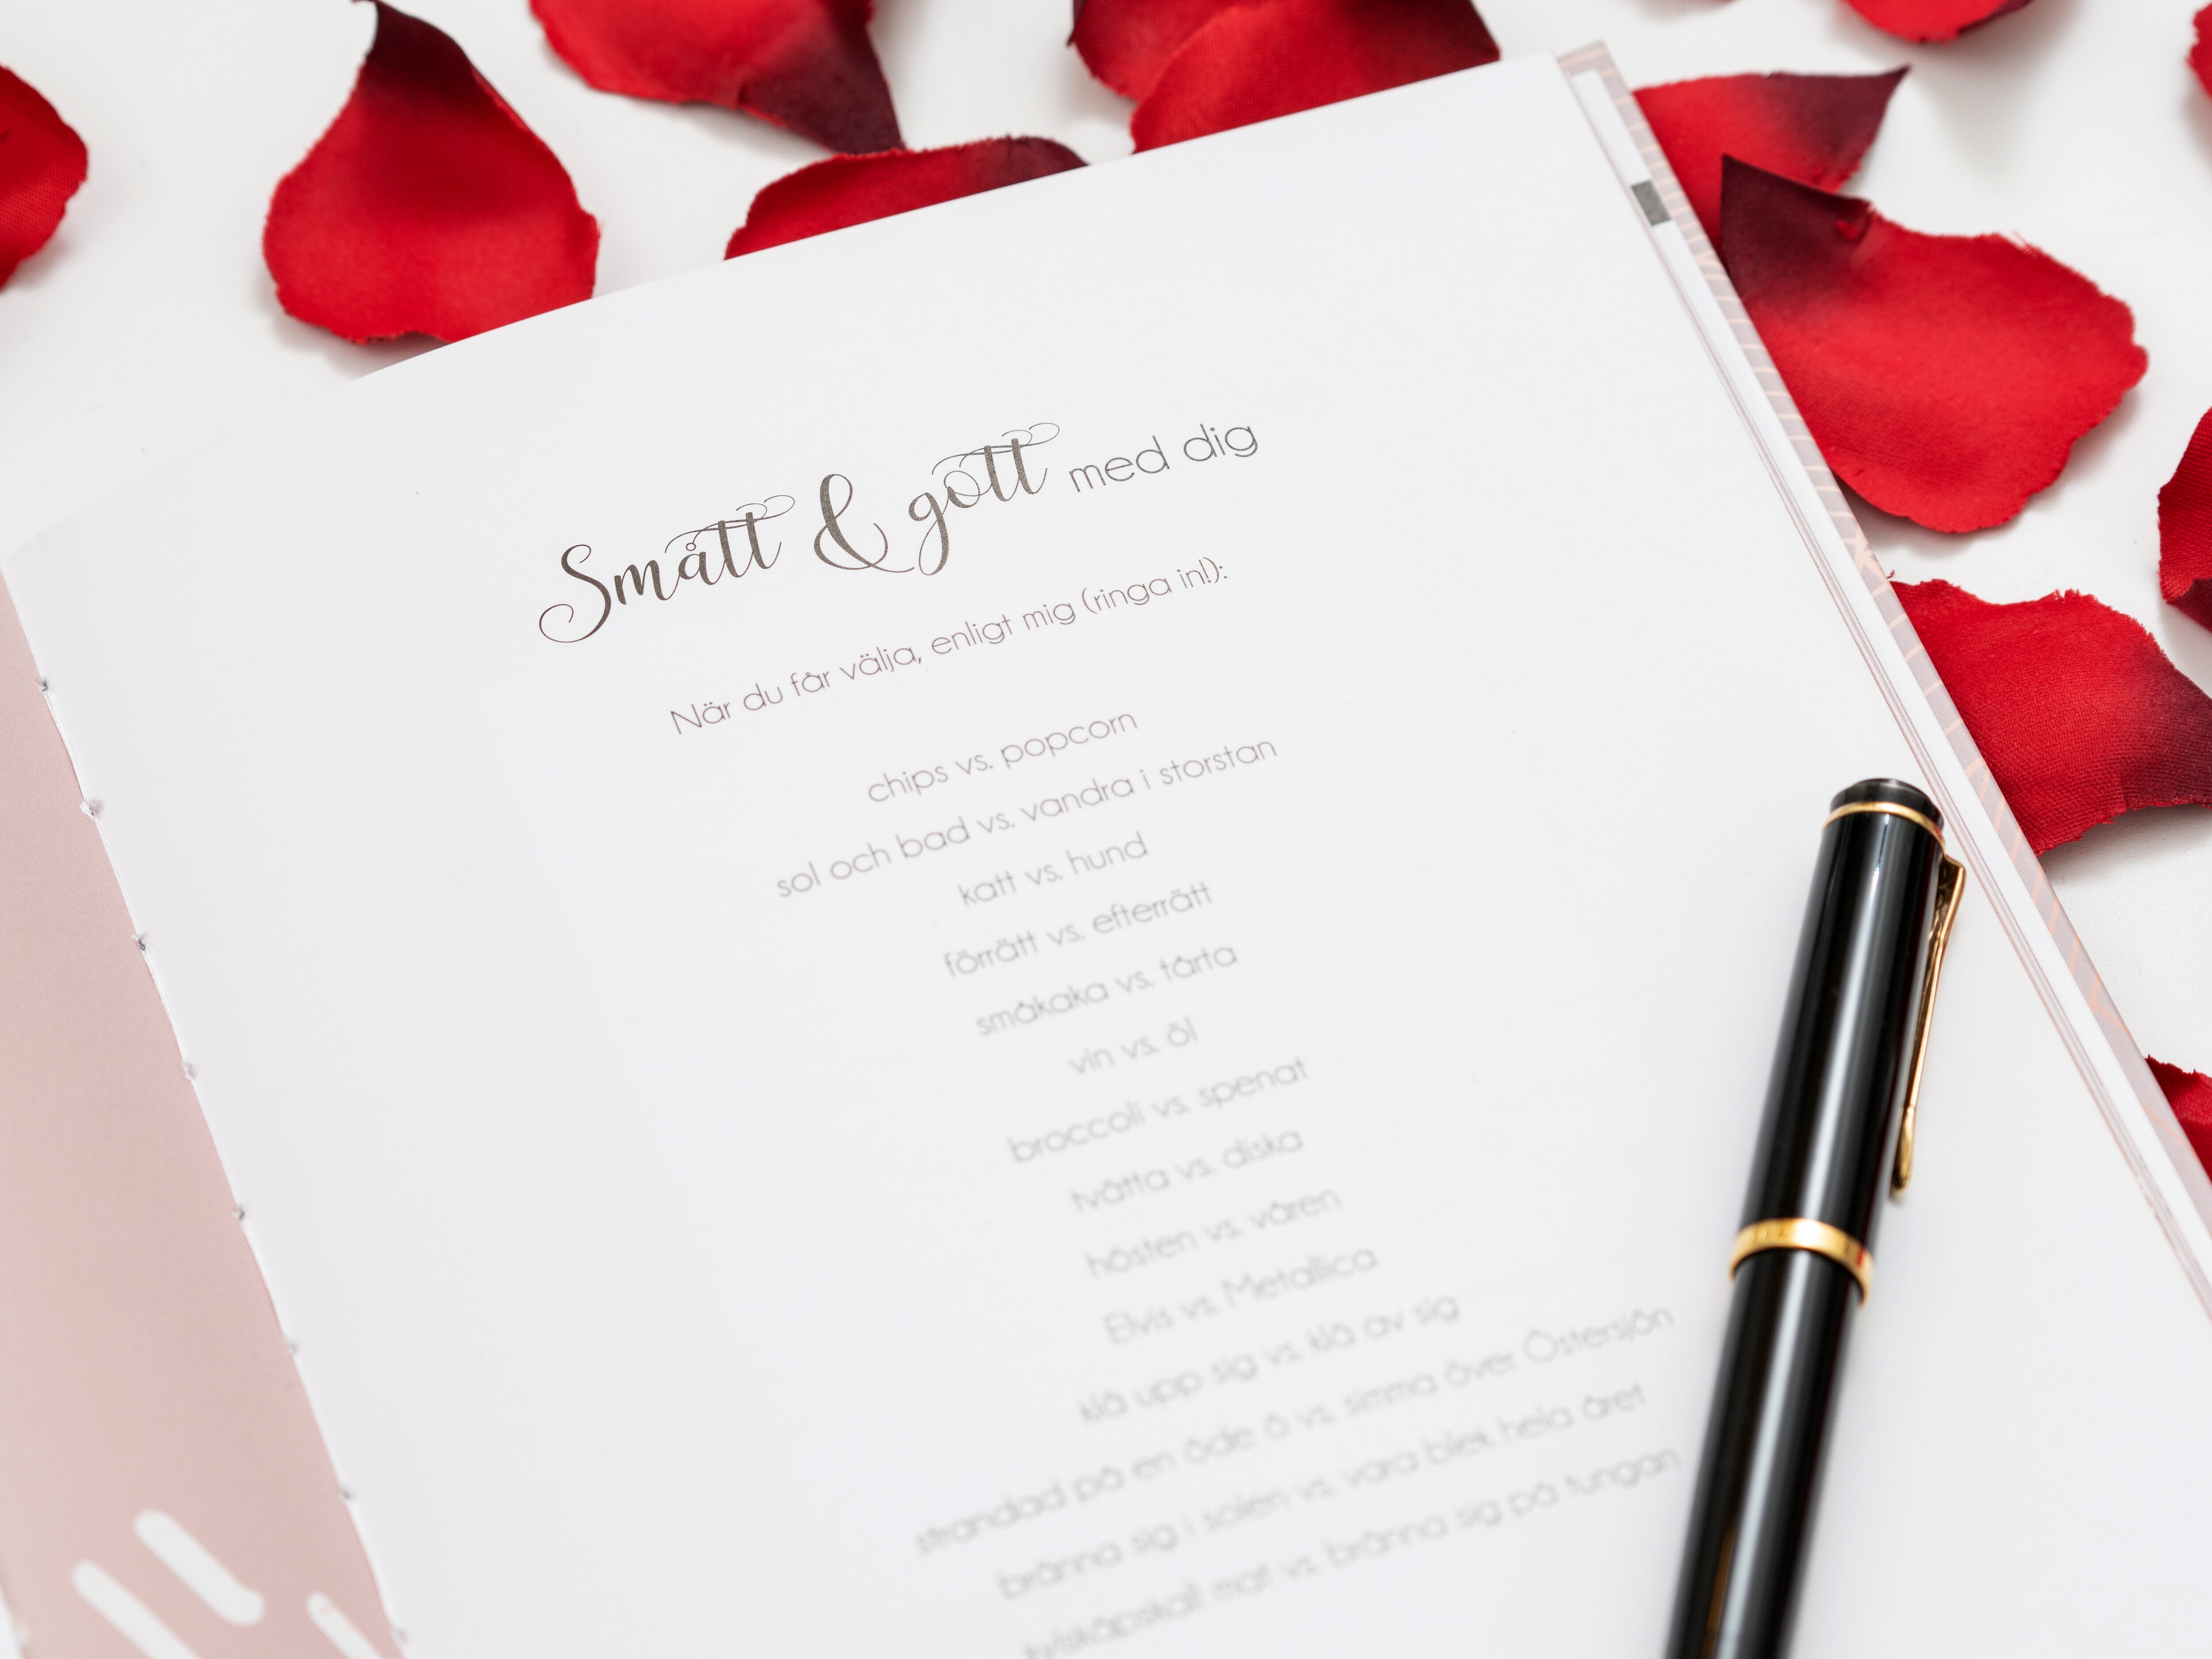 Smått & gott med dig
När du får välja, enligt mig (ringa in!):
chips vs. popcorn
sol och bad vs. vandra i storstan
katt vs. hund
förrätt vs. efterrätt
småkaka vs. tårta
vin vs. öl
broccoli vs. spenat
tvätta vs. diska
hösten vs. våren
Elvis vs. Metallica
klä upp sig vs. klä av sig
strandad på en öde ö vs. simma över Östersjön
bränna sig i solen vs. vara blek hela året
kylskåpskall mat vs. bränna sig på tungan